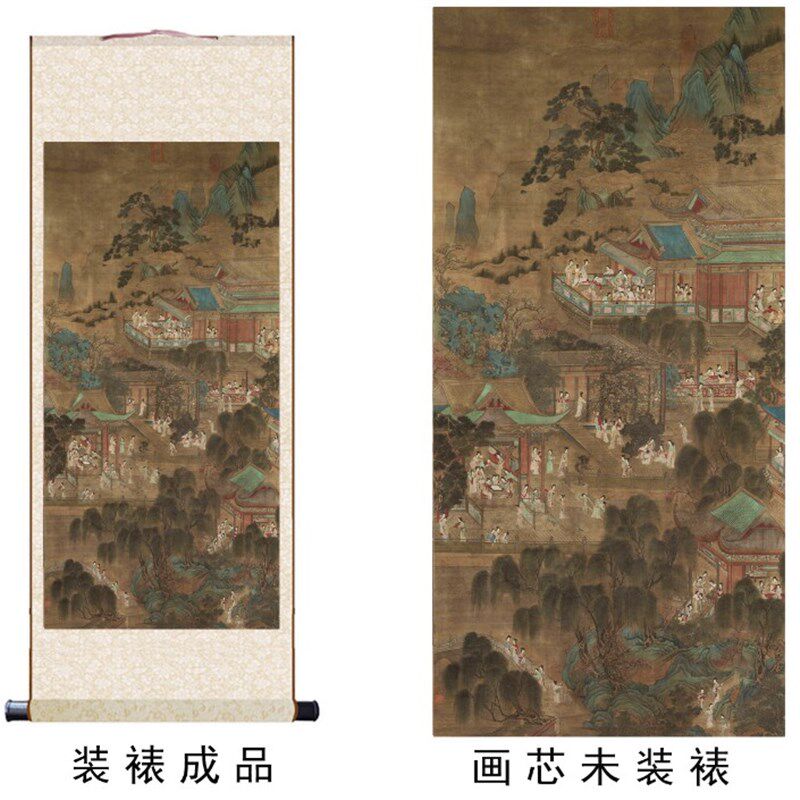 装裱成品
画芯未装裱